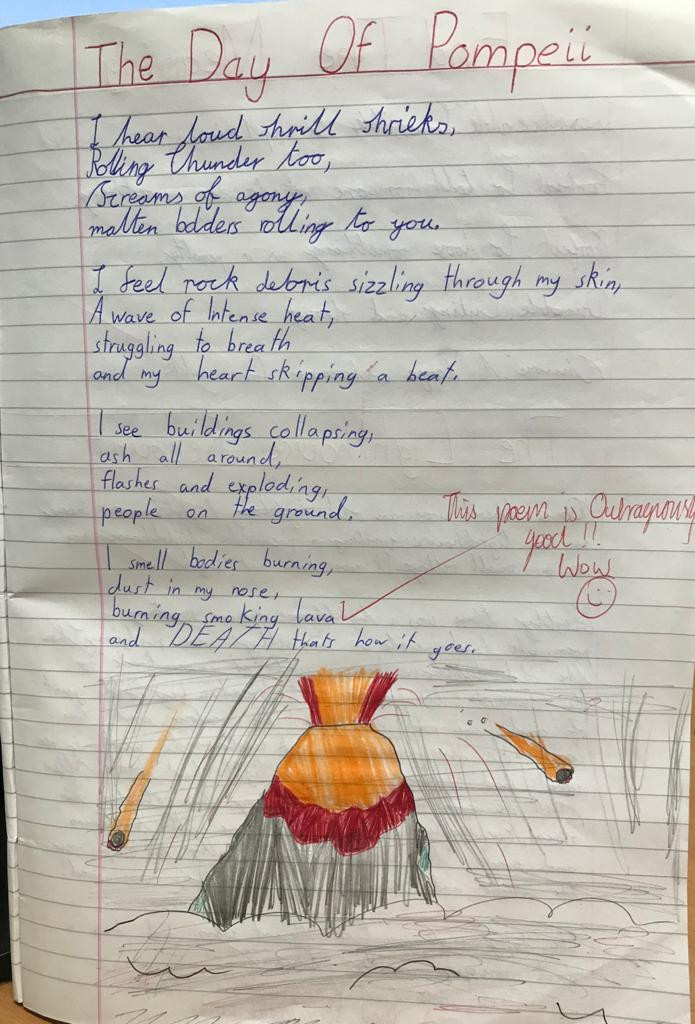 The Day Of Pompeii
I hear loud shrill shrieks,
Rolling thunder too,
Screams of agony,
molten bolders rolling to you.
I feel rock debris sizzling through my skin,
A wave of Intense heat,
struggling to breath
and my heart skipping a beat.
I see buildings collapsing,
ash all around,
flashes and exploding,
people on the ground.
This poem is Outrageously
good !!
Wow
I smell bodies burning,
dust in my nose,
burning smoking lava
and DEATH thats how it goes.